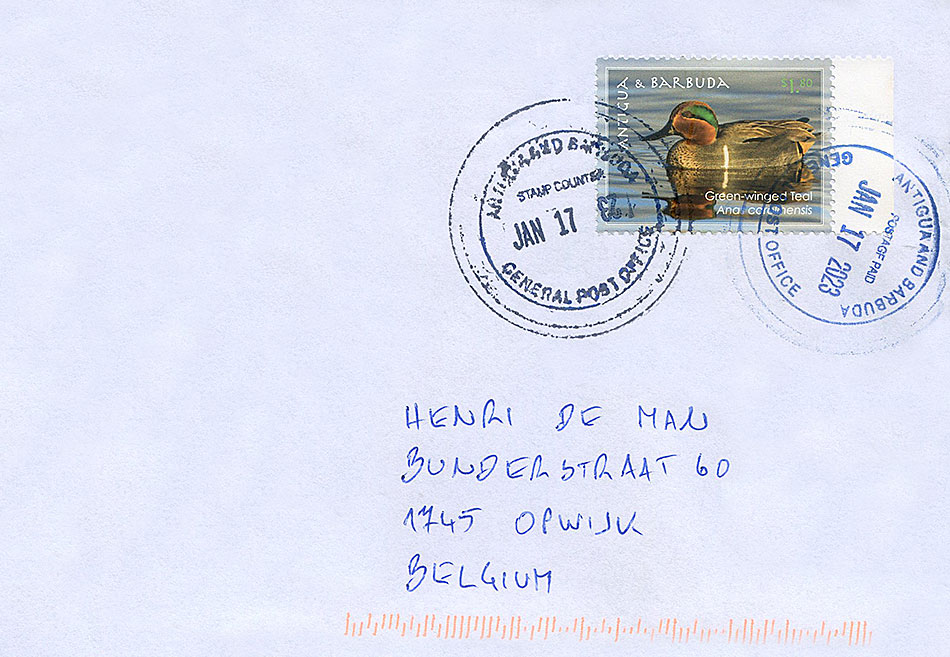 ANTIGUA & BARBUDA
$1.80
Green-winged Teal
Anas carolinensis
ANTIGUA AND BARBUDA
STAMP COUNTER
JAN 17
GENERAL POST OFFICE
ANTIGUA AND BARBUDA
POSTAGE PAID
JAN 17 2023
POST OFFICE
HENRI DE MAN
BUNDERSTRAAT 60
1745 OPWIJK
BELGIUM